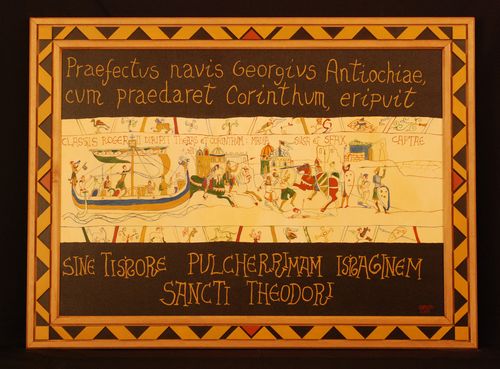 Praefectus navis Georgius Antiochiae,
cum praedaret Corinthum, eripuit
CLASSIS ROGERII DIRIPIT THEBAS et CORINTHUM: SUSA et SFAX CAPTAE
SINE TIMORE PULCHERRIMAM IMAGINEM
SANCTI THEODORI